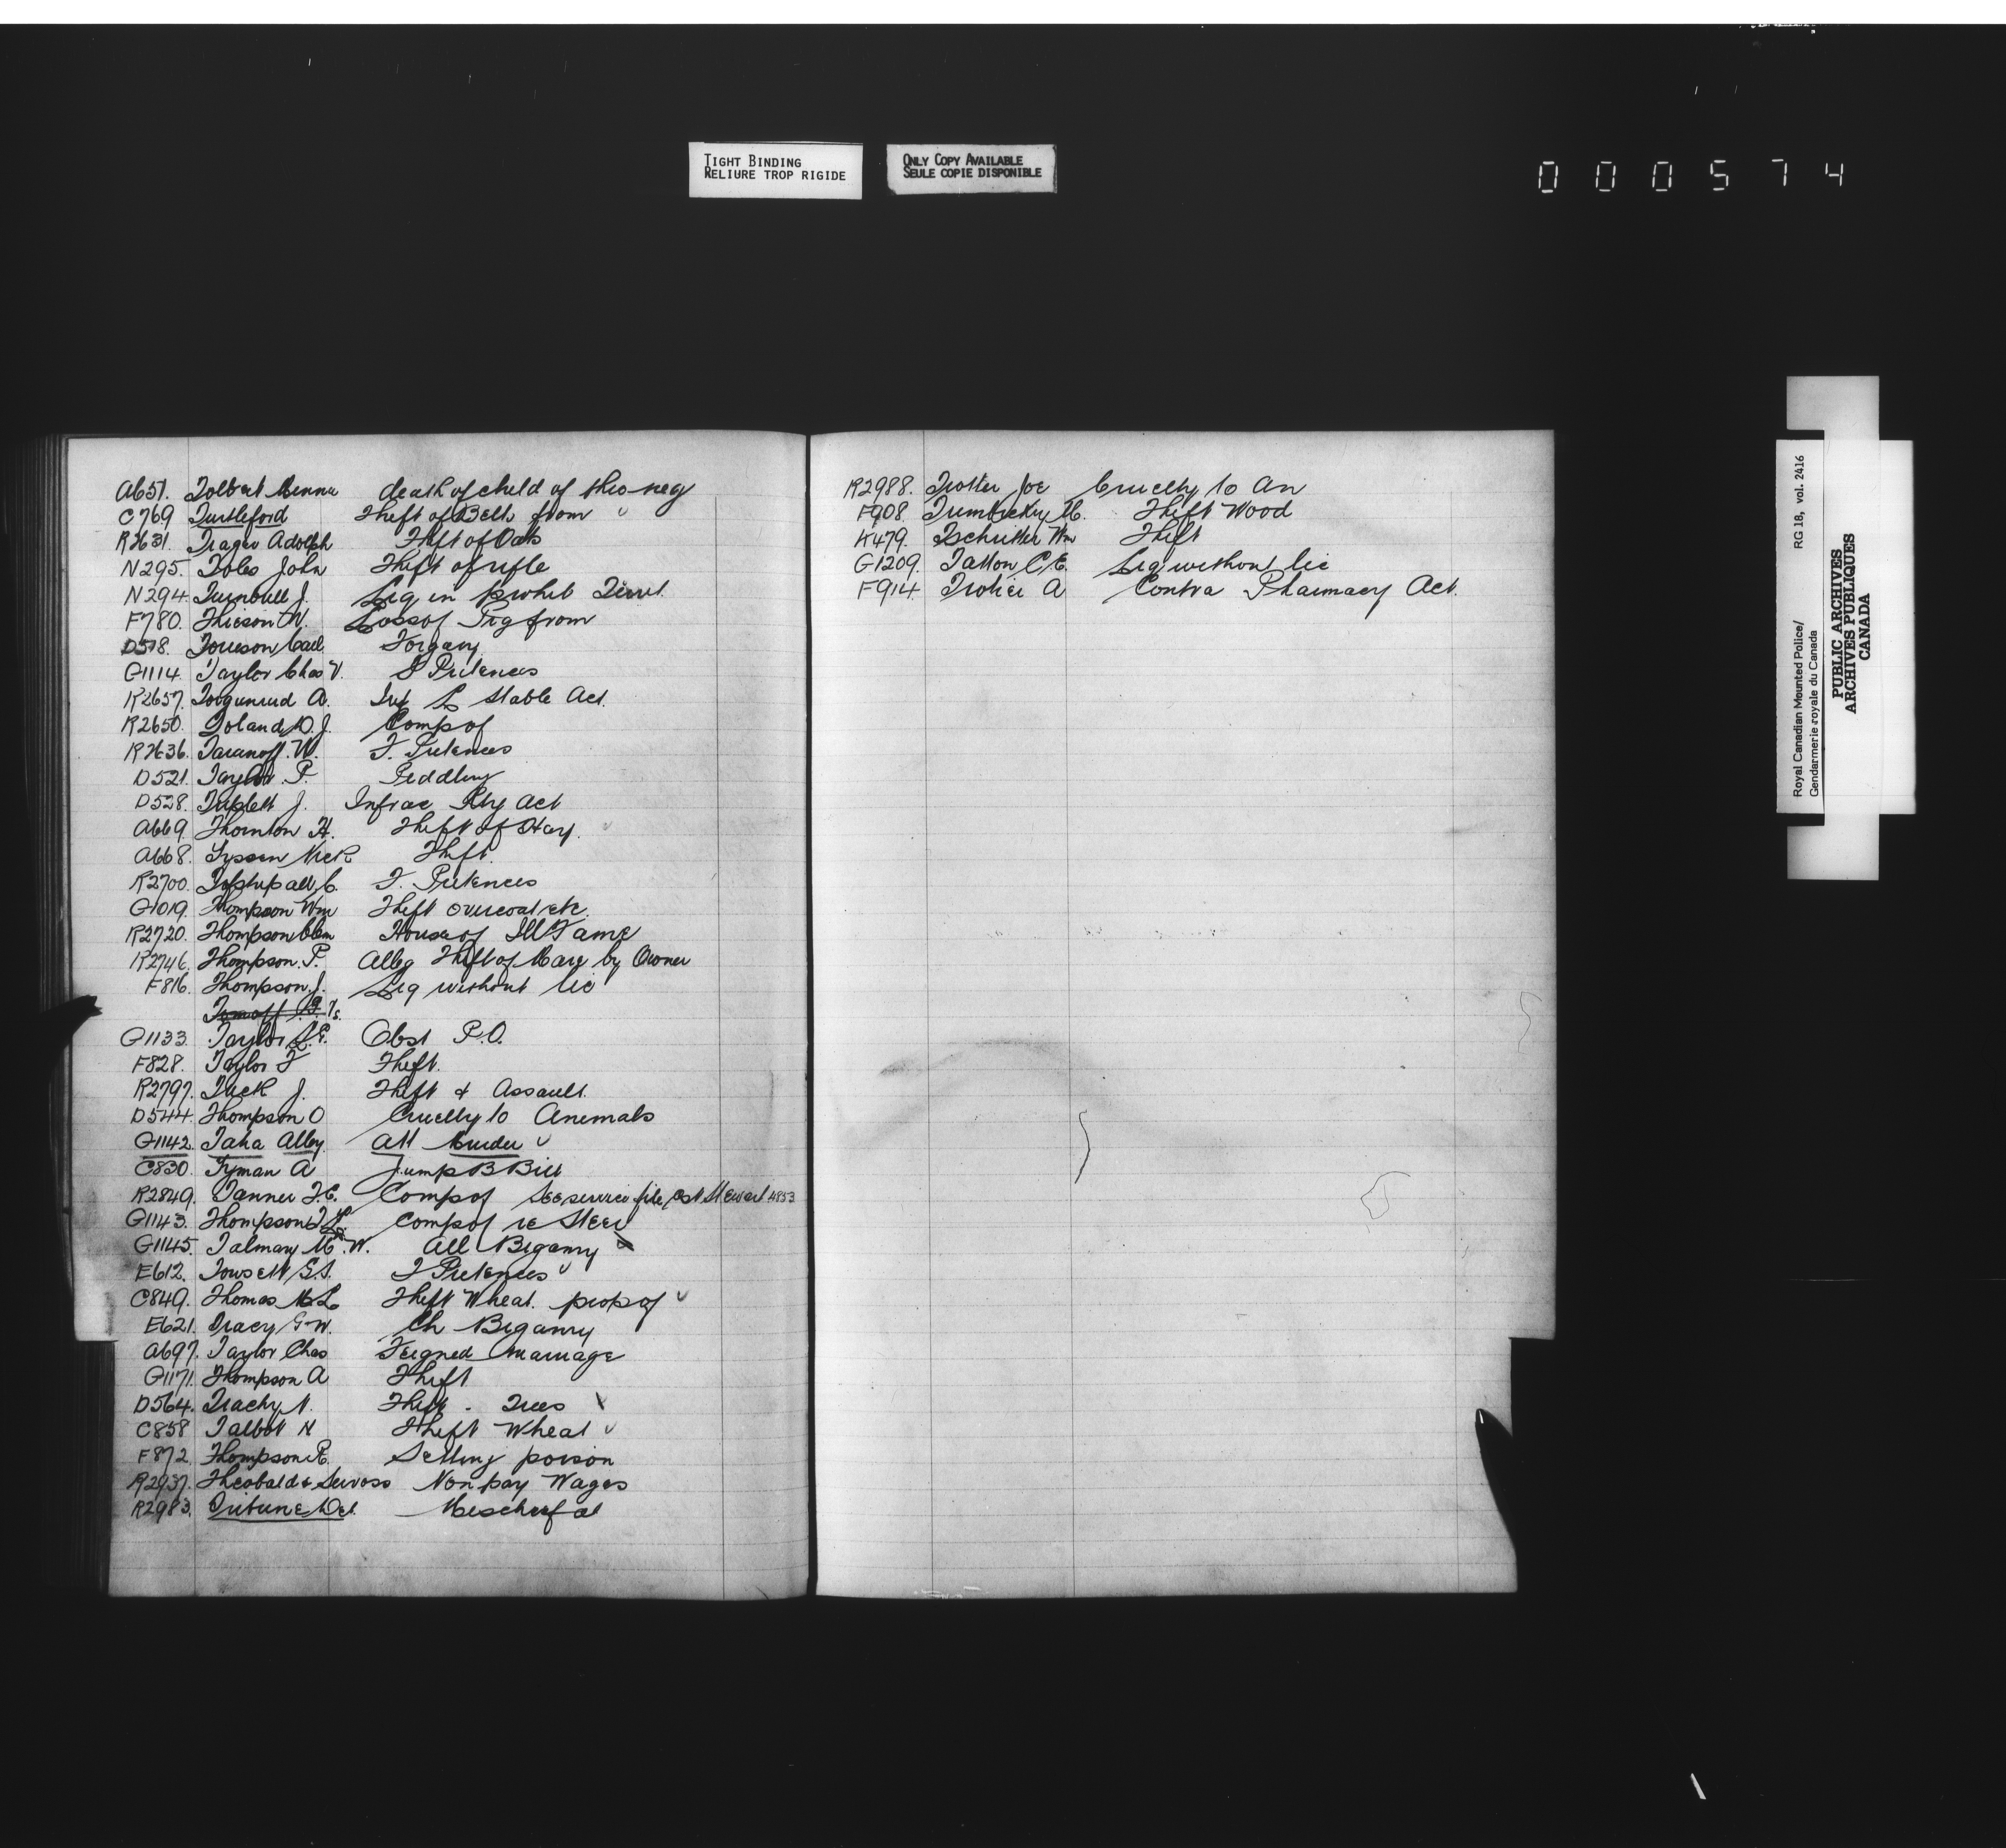 TIGHT BINDING
RELIURE TROP RIGIDE
ONLY COPY AVAILABLE
SEULE COPIE DISPONIBLE
000574
A651. Tolbert Minnie death of child of thro neg
C769 Turtleford Theft of Belts from
R2631. Trager Adolph Theft of Oats
N295. Toles John Theft of rifle
N294. Turnbull J. Liq in prohib Territ.
F780. N. Loss of Pig from
D518. Carl Forgary
G1114. Taylor Chas V. F Pretences
R2657. Torgunrud A. Inf L Stable Act.
R2650. Toland D. J. Comp of
R2636. Taranoff. W. F. Pretences
D521. Taylor. P. Peddling
D528. Triplett J. Infrac Rly Act
A669. Thornton H. Theft of Hay.
A668. Nick Theft.
R2700. C. F. Pretences
G1019. Thompson Wm Theft overcoat etc.
R2720. Thompson Clem House of Ill Fame
R2746. Thompson. P. Alleg Theft of Mare by Owner
F816. Thompson. J. Liq without lic
G1133. Taylor S.E. Obst P.O.
F828. Taylor F Theft.
R2797. Tuck J. Theft & Assault.
D544. Thompson O Cruelty to Animals
G1142. Taha Alley Att Murder
C830. Tyman A Jump B Bill
R2849. Tanner F.C. Comp of See service file Cst Stewart 4853
G1143. Thompson Comp of re Steer
G1145. Talmay M. W. All Bigamy
E612. Towsett G.S. F Pretences
C849. Thomas M L Theft Wheat. prop of
E621. Tracy G W. Ch Bigamy
A697. Taylor Chas Feigned marriage
G1171. Thompson A Theft
D564. Trachy N. Theft - Trees
C858 Talbot H Theft Wheat
F872. Thompson R. Selling poison
R2937. Theobald & Servoss Non pay Wages
R2983. Tribune Det. Mischief at
R2988. Trotter Joe Cruelty to An
F908. M. Theft Wood
K479. Tschritter Wm Theft
G1209. Tatton C E. Liq without lic
F914. Trotier A Contra Pharmacy Act.
Royal Canadian Mounted Police/ RG 18, vol. 2416
Gendarmerie royale du Canada
PUBLIC ARCHIVES
ARCHIVES PUBLIQUES
CANADA